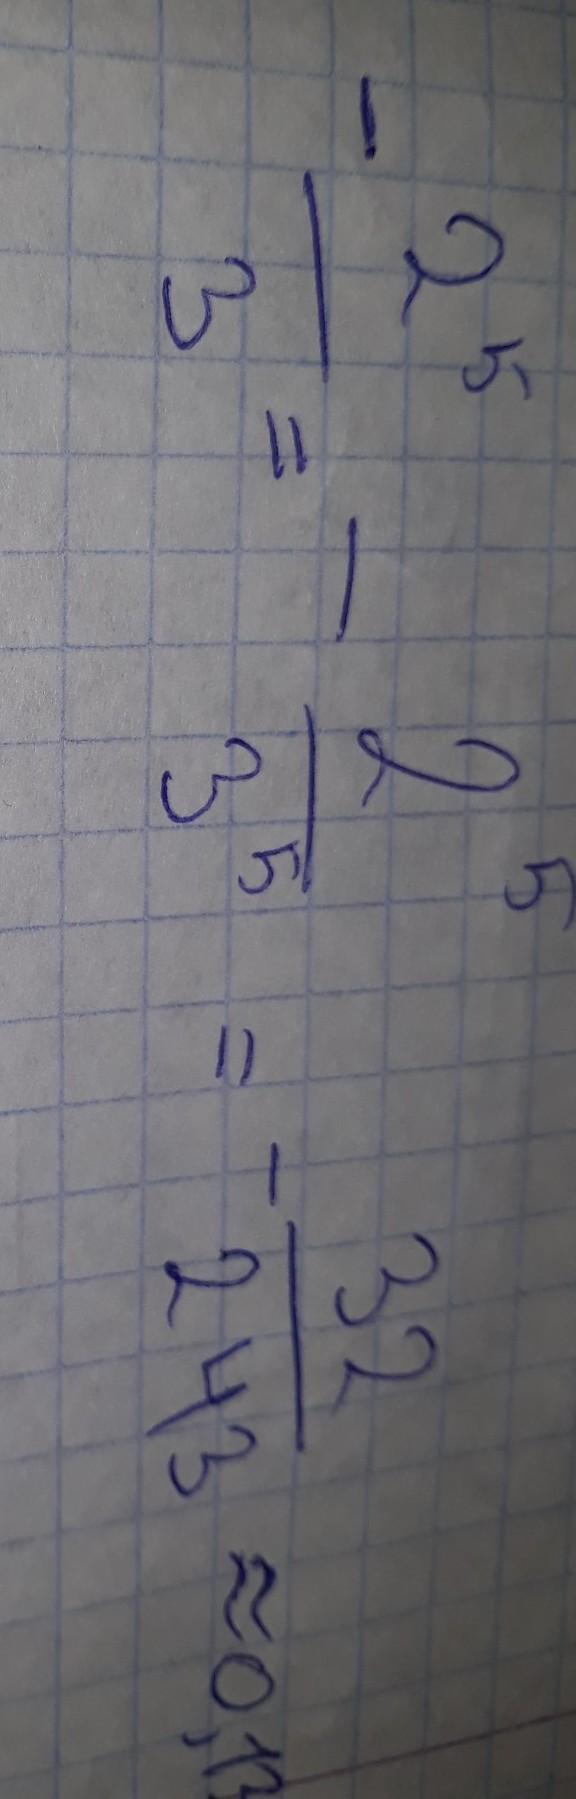 - 2⁵/3 = - 2⁵/3⁵ = - 32/243 ≈ 0,13